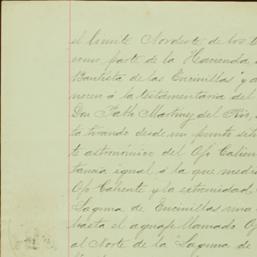 el límite Nordeste de los t
como parte de la Hacienda
Bautista de las Encinillas y a
nocen á la testamentaria del
Don Pablo Martinez del Rio,
ta tirando desde un punto sit
te astronómico del Ojo Calien
tancia igual á la que medi
Ojo Caliente y la extremidad
Laguna de Encinillas una
hasta el aguaje llamado O
al Norte de la Laguna de